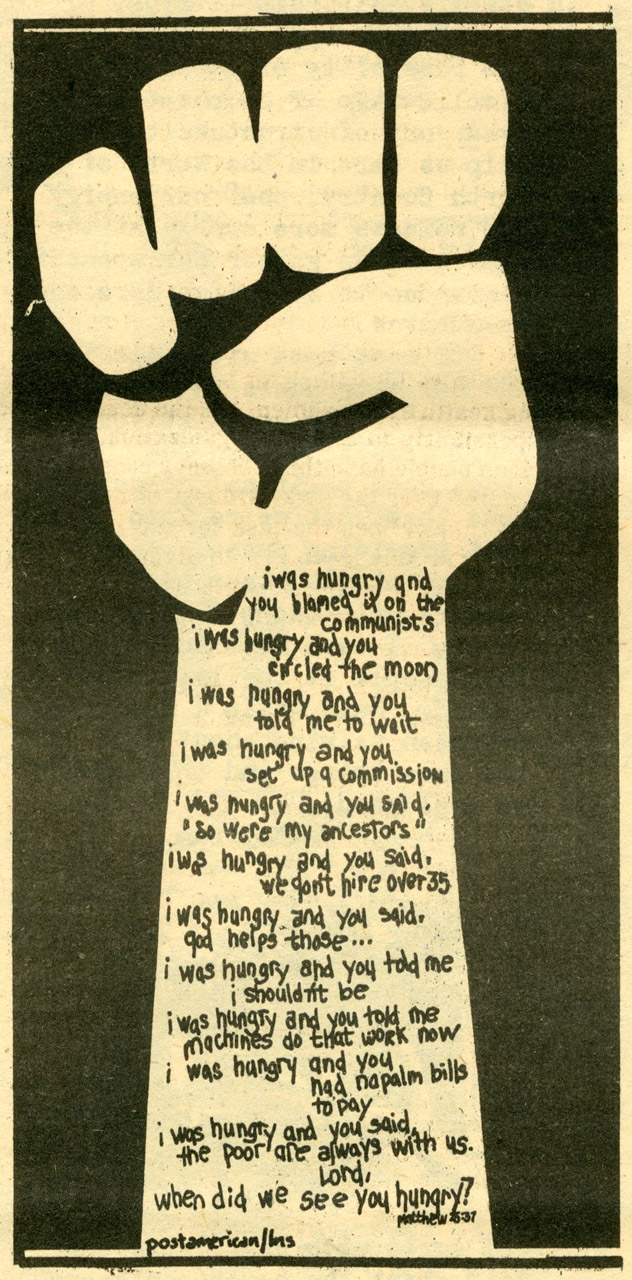 i was hungry and
you blamed it on the
communists
i was hungry and you
circled the moon
i was hungry and you
told me to wait
i was hungry and you
set up a commission
i was hungry and you said.
"so were my ancestors"
i was hungry and you said.
we don't hire over 35
i was hungry and you said.
god helps those...
i was hungry and you told me
i shouldn't be
i was hungry and you told me
machines do that work now
i was hungry and you
had napalm bills
to pay
i was hungry and you said,
the poor are always with us.
Lord,
when did we see you hungry?
matthew 25:37
postamerican/lns